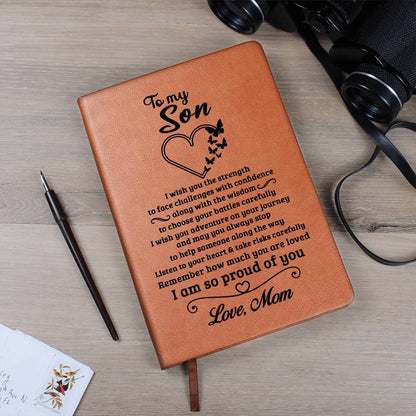 To my
Son
I wish you the strength
to face challenges with confidence
along with the wisdom
to choose your battles carefully
I wish you adventure on your journey
and may you always stop
to help someone along the way
Listen to your heart & take risks carefully
Remember how much you are loved
I am so proud of you
Love, Mom